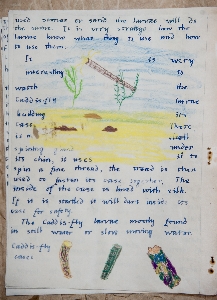 used stones or sand the larvae will do
the same. It is very strange how the
larvae know what they to use and how
to use them.
It is very
interesting to
watch the
caddis-fly larvae
building its
case. There
is a under
spinning gland
its chin, it uses it to
spin a fine thread, the thread is then
used to fasten its case together. The
inside of the case is lined with silk.
If it is startled it will dart inside its
case for safety.
The Caddis-fly larvae mostly found
in still water or slow moving water.
Caddis-fly
cases